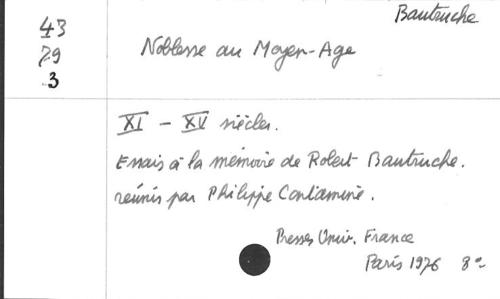 Bautruche
43
79
3
Noblesse au Moyen-Age
XI - XV siècles.
Essais à la mémoire de Robert Bautruche.
réunis par Philippe Contamine.
Presses Univ. France
Paris 1976 8°